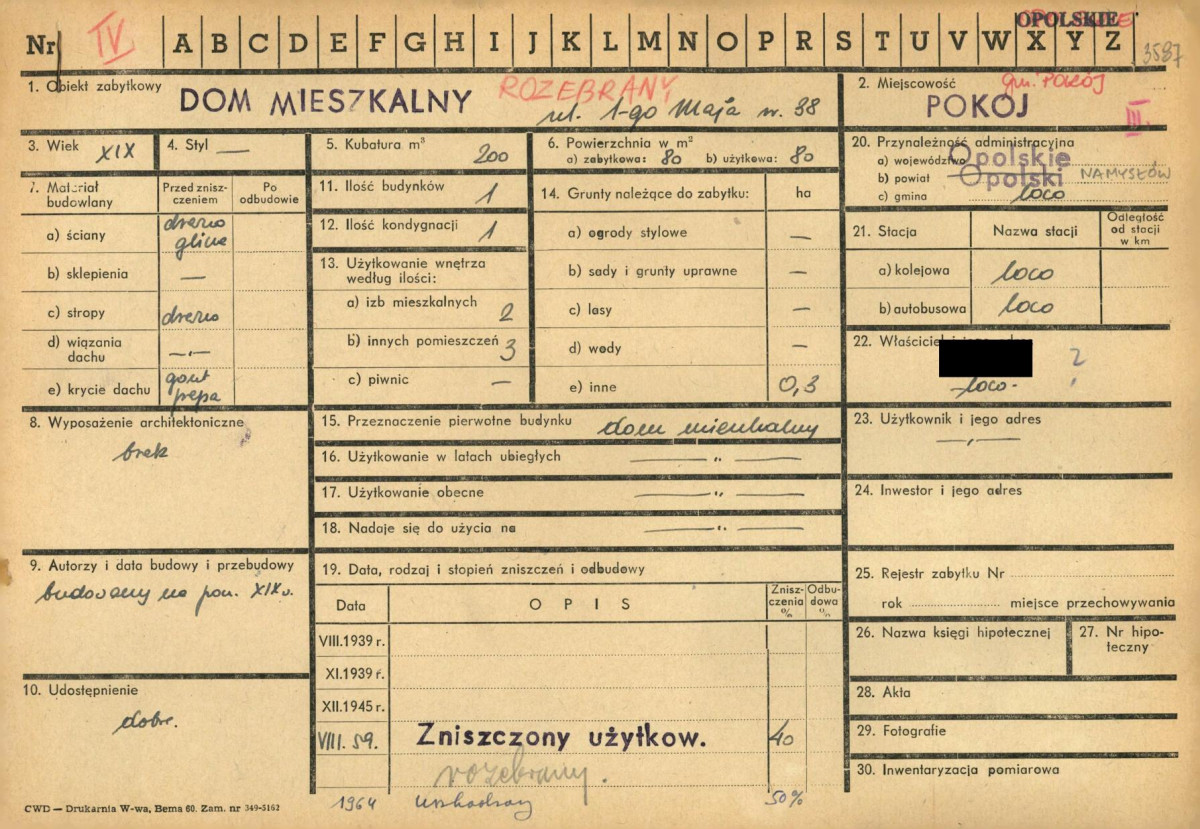 OPOLSKIE
Nr IV A B C D E F G H I J K L M N O P R S T U V W X Y Z 3587
1. Obiekt zabytkowy
DOM MIESZKALNY
ROZEBRANY
ul. 1-go Maja nr. 38
2. Miejscowość gm. POKÓJ
POKÓJ
III.
3. Wiek XIX
4. Styl —
5. Kubatura m³ 200
6. Powierzchnia w m²
a) zabytkowa: 80 b) użytkowa: 80
20. Przynależność administracyjna
a) województwo Opolskie
b) powiat Opolski NAMYSŁÓW
c) gmina loco
7. Materiał budowlany
Przed zniszczeniem
Po odbudowie
a) ściany drewno glina
b) sklepienia —
c) stropy drewno
d) wiązania dachu —„—
e) krycie dachu gont papa
11. Ilość budynków 1
12. Ilość kondygnacji 1
13. Użytkowanie wnętrza
według ilości:
a) izb mieszkalnych 2
b) innych pomieszczeń 3
c) piwnic —
14. Grunty należące do zabytku: ha
a) ogrody stylowe —
b) sady i grunty uprawne —
c) lasy —
d) wody —
e) inne 0,3
21. Stacja
Nazwa stacji
Odległość od stacji w km
a) kolejowa loco
b) autobusowa loco
22. Właściciel
loco. ?
8. Wyposażenie architektoniczne
brak
15. Przeznaczenie pierwotne budynku dom mieszkalny
16. Użytkowanie w latach ubiegłych —„—
17. Użytkowanie obecne —„—
18. Nadaje się do użycia na —„—
23. Użytkownik i jego adres
—„—
24. Inwestor i jego adres
9. Autorzy i data budowy i przebudowy
budowany na pocz. XIX w.
19. Data, rodzaj i stopień zniszczeń i odbudowy
Data
OPIS
Zniszczenia %
Odbudowa %
VIII.1939 r.
XI.1939 r.
XII.1945 r.
VIII. 59. Zniszczony użytkow. 40
rozebrany.
1964 uszkodzony 50%
25. Rejestr zabytku Nr
rok miejsce przechowywania
26. Nazwa księgi hipotecznej
27. Nr hipoteczny
10. Udostępnienie
dobre.
28. Akta
29. Fotografie
30. Inwentaryzacja pomiarowa
CWD — Drukarnia W-wa, Bema 60. Zam. nr 349-5162